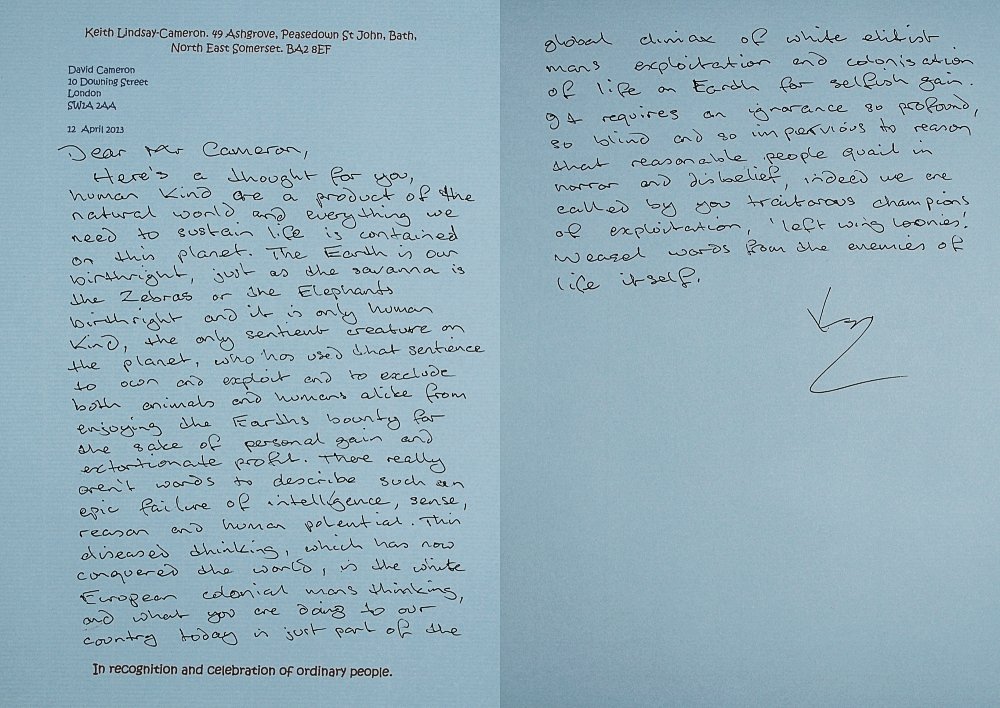 Keith Lindsay-Cameron. 49 Ashgrove, Peasedown St John, Bath,
North East Somerset. BA2 8EF
David Cameron
10 Downing Street
London
SW1A 2AA
12 April 2013
Dear Mr Cameron,
Here's a thought for you,
human kind are a product of the
natural world and everything we
need to sustain life is contained
on this planet. The Earth is our
birthright, just as the savanna is
the Zebras or the Elephants
birthright and it is only human
kind, the only sentient creature on
the planet, who has used that sentience
to own and exploit and to exclude
both animals and humans alike from
enjoying the Earths bounty for
the sake of personal gain and
extortionate profit. There really
aren't words to describe such an
epic failure of intelligence, sense,
reason and human potential. This
diseased thinking, which has now
conquered the world, is the white
European colonial mans thinking,
and what you are doing to our
country today is just part of the
In recognition and celebration of ordinary people.
global climax of white elitist
mans exploitation and colonisation
of life on Earth for selfish gain.
It requires an ignorance so profound,
so blind and so impervious to reason
that reasonable people quail in
horror and disbelief, indeed we are
called by you traitorous champions
of exploitation, 'left wing loonies'.
Weasel words from the enemies of
life itself.